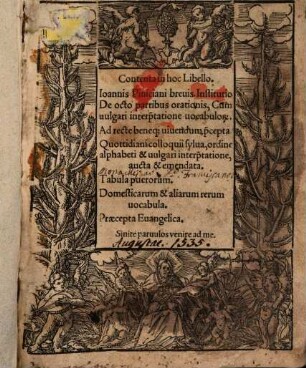 Contenta in hoc Libello.
Ioannis Piniciani brevis Institutio
De octo partibus orationis, Cum
uulgari interprtatione uocabulorꝝ.
Ad recte beneqꝫ uiuendum, pręcepta
Quottidiani colloquii sylua, ordine
alphabeti & uulgari interprtatione,
aucta & emendata.
Tabula puerorum.
Domesticarum & aliarum rerum
uocabula.
Præcepta Euangelica.
Sinite paruulos venire ad me.
Augustae. 1535.